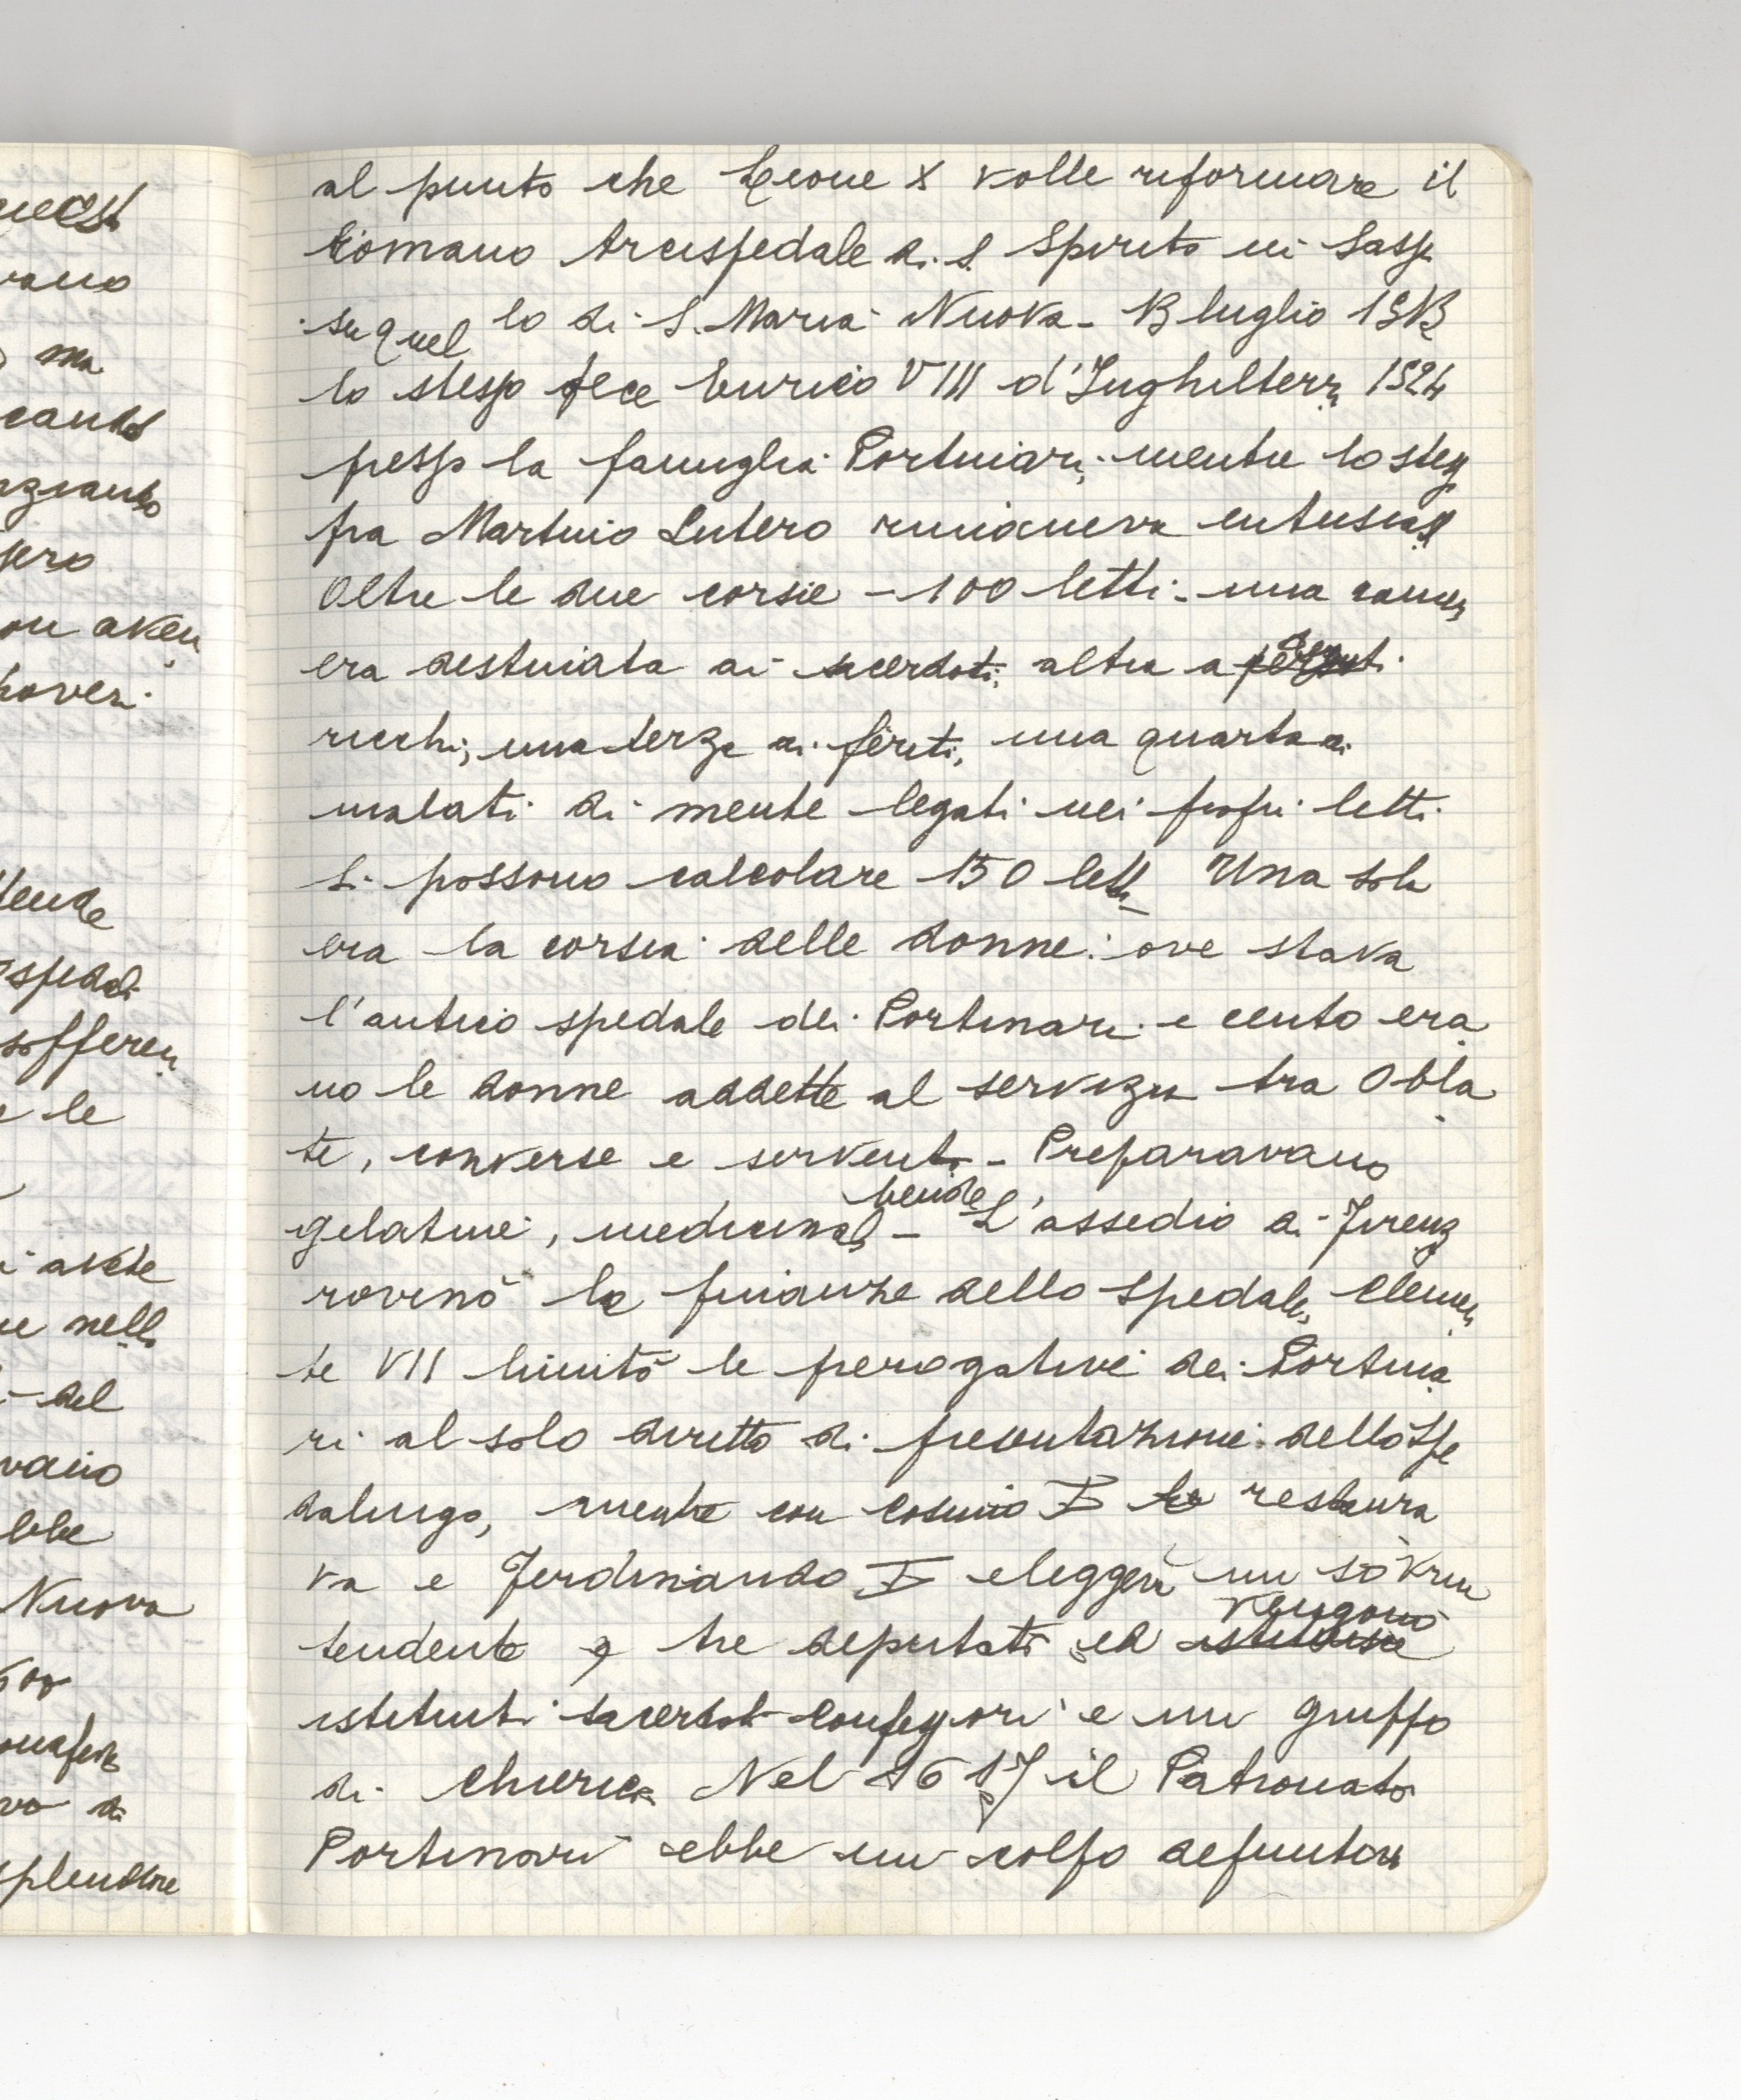 al punto che Leone X volle riformare il
Romano Arcispedale di S. Spirito in Sassi
su quel lo di S. Maria Nuova - 13 luglio 1513
lo stesso fece Enrico VIII d'Inghilterra 1524
presso la famiglia Portinari; mentre lo stes
fra Martino Lutero rimaneva entusiast
Oltre le due corsie - 100 letti - una camera
era destinata ai sacerdoti; altra a
ricchi; una terza ai feriti, una quarta ai
malati di mente legati nei propri letti
Si possono calcolare 150 letti Una sola
era la corsia delle donne: ove stava
l'antico spedale dei Portinari e cento era
no le donne addette al servizio tra Obla
te, converse e serventi - Preparavano
gelatine, medicinali - bende L'assedio di Firenze
rovinò le finanze dello Spedale, Clemen
te VII limitò le prerogative dei Portina
ri al solo diritto di presentazione dello Spe
dalingo, mente con Cosimo I lo restaura
va e Ferdinando I eleggeva un sovrin
tendente e tre deputati ed vengono
istituiti sacerdoti confessori e un gruppo
di Chierici. Nel 1617 il Patronato
Portinari ebbe un colpo definitivo
quest
vano
ma
pero
poveri
tende
ospedali
sofferen
e le
avete
nella
del
vano
ebbe
Nuova
splendore